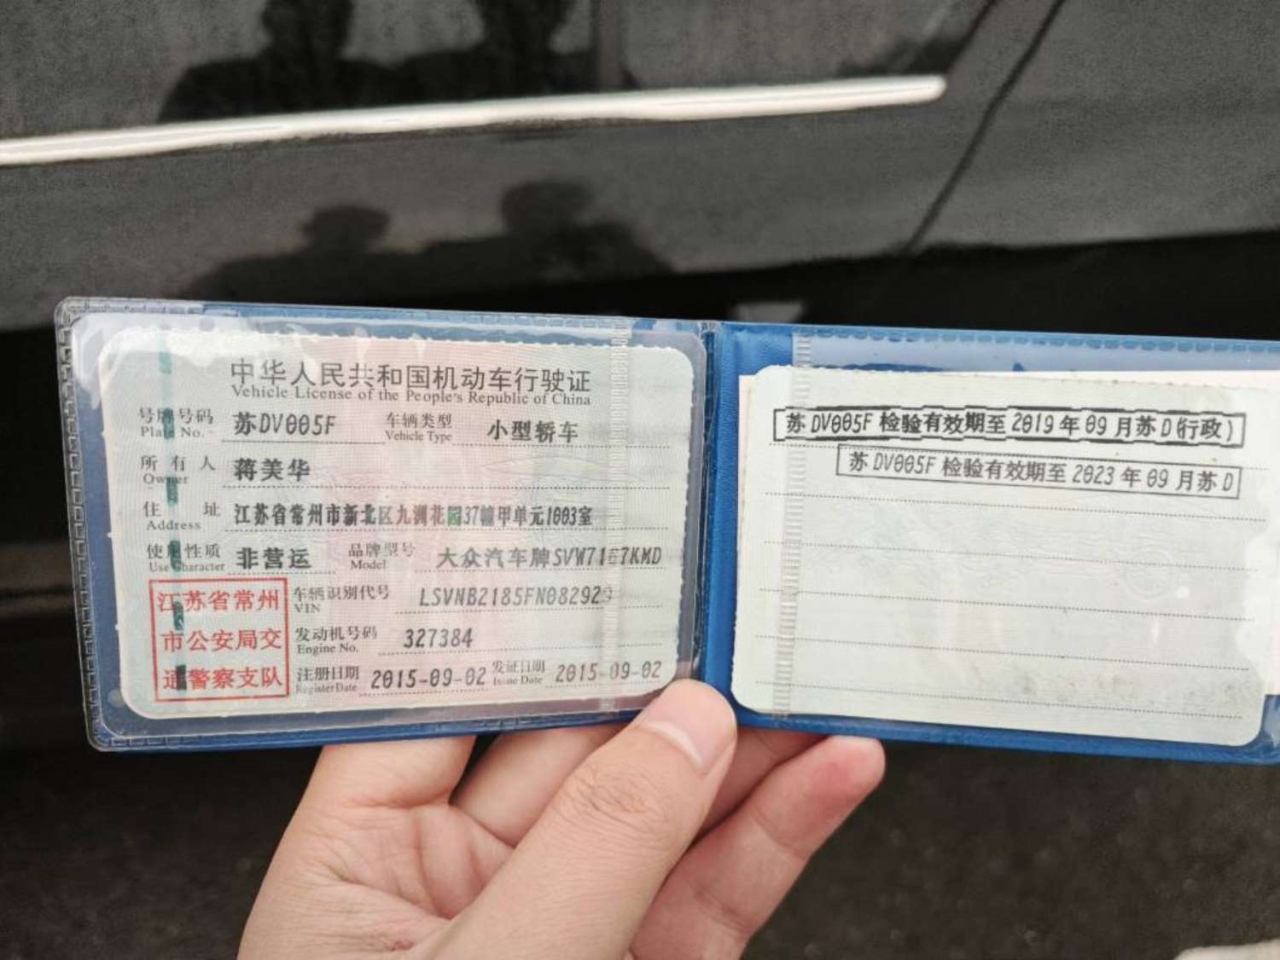 中华人民共和国机动车行驶证
Vehicle License of the People's Republic of China
号牌号码 苏DV005F 车辆类型 小型轿车
Plate No. Vehicle Type
所有人 蒋美华
Owner
住址 江苏省常州市新北区九洲花园37幢甲单元1003室
Address
使用性质 非营运 品牌型号 大众汽车牌SVW71 7KMD
Use Character Model
江苏省常州
市公安局交
通警察支队
车辆识别代号 LSVNB2185FN082929
VIN
发动机号码 327384
Engine No.
注册日期 2015-09-02 发证日期 2015-09-02
Register Date Issue Date
苏DV005F 检验有效期至2019年09月苏D(行政)
苏DV005F 检验有效期至2023年09月苏D